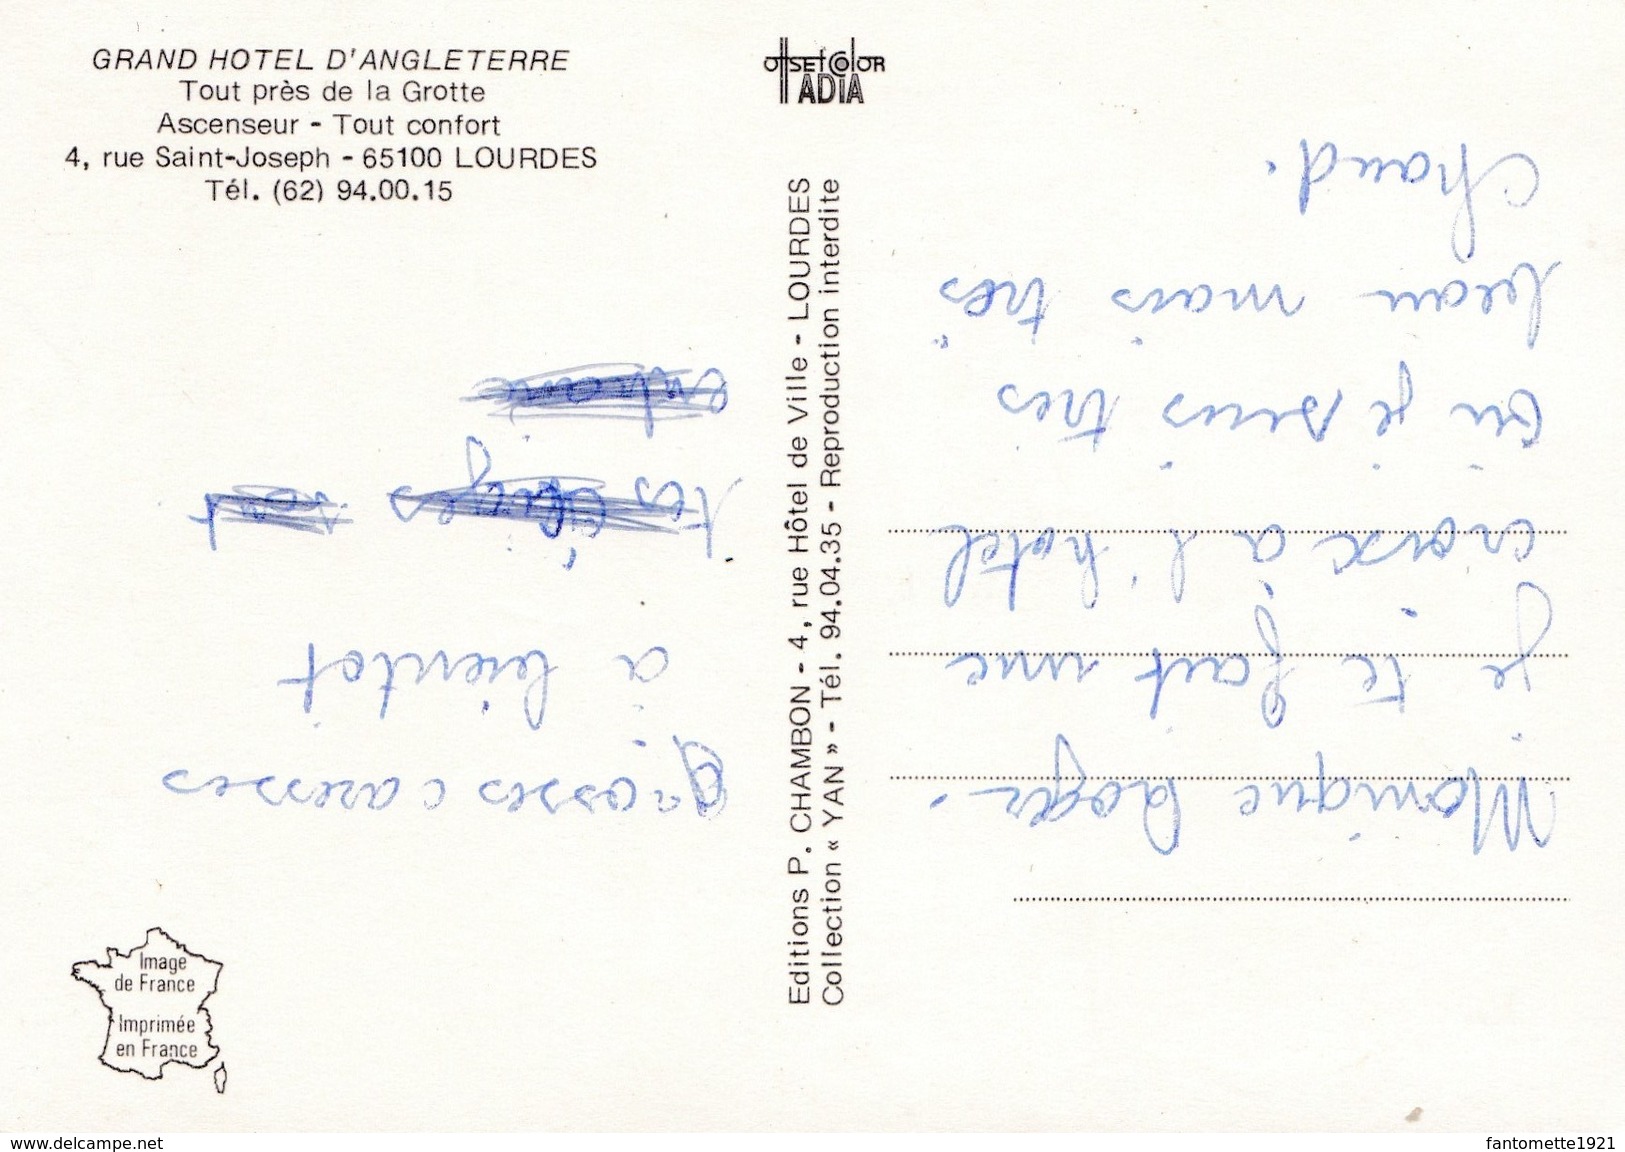 GRAND HOTEL D'ANGLETERRE
Tout près de la Grotte
Ascenseur - Tout confort
4, rue Saint-Joseph - 65100 LOURDES
Tél. (62) 94.00.15
OffSET COlOR
ADIA
Editions P. CHAMBON - 4, rue Hôtel de Ville - LOURDES
Collection « YAN » - Tél. 94.04.35 - Reproduction interdite
Monique
je te fait une
croix à l'hotel
ou je suis très
beau mais très
chaud.
grosses caresses
à bientot
tes
Image
de France
Imprimée
en France
www.delcampe.net
fantomette1921